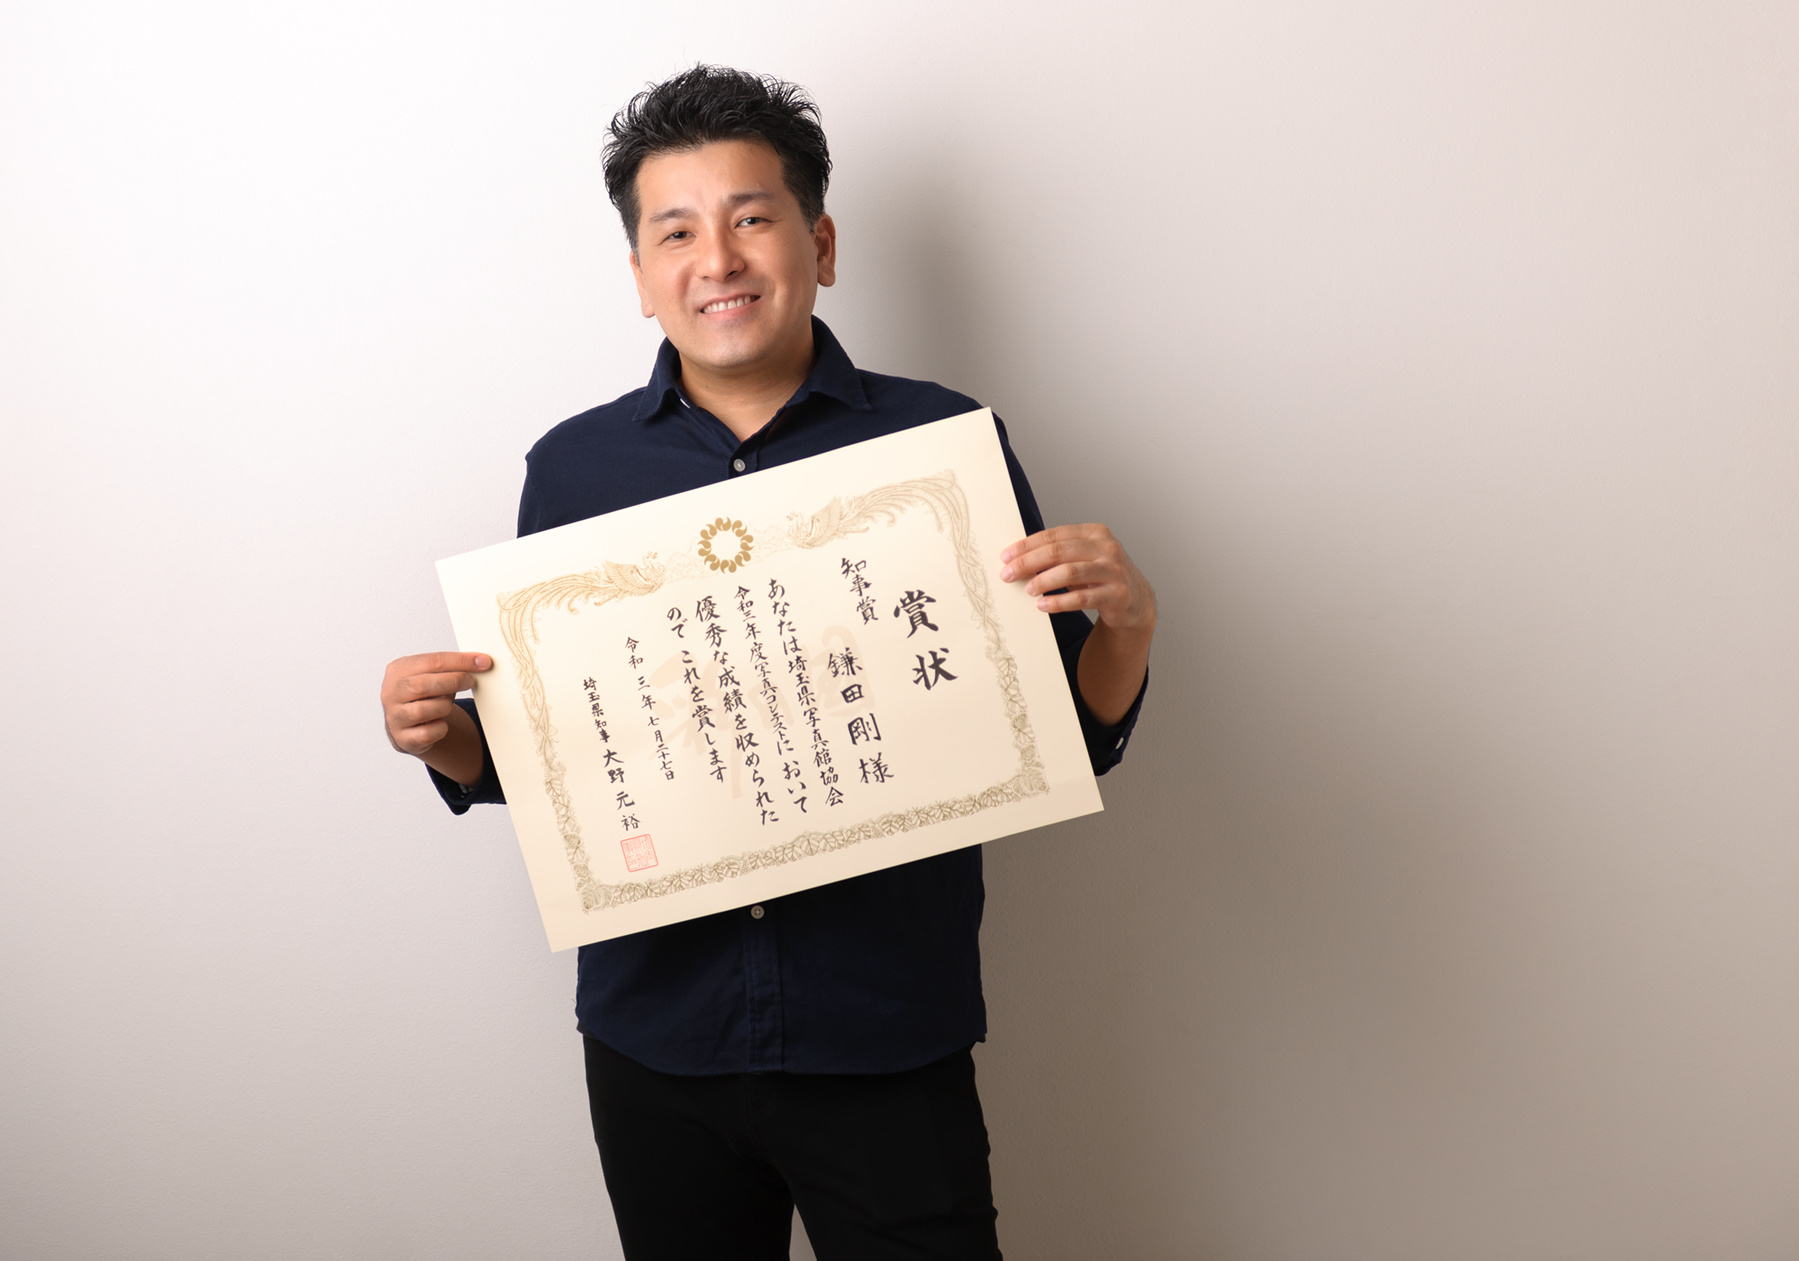 賞状
知事賞
鎌田剛様
あなたは埼玉県写真館協会
令和三年度写真コンテストにおいて
優秀な成績を収められた
のでこれを賞します
令和三年七月二十七日
埼玉県知事 大野元裕